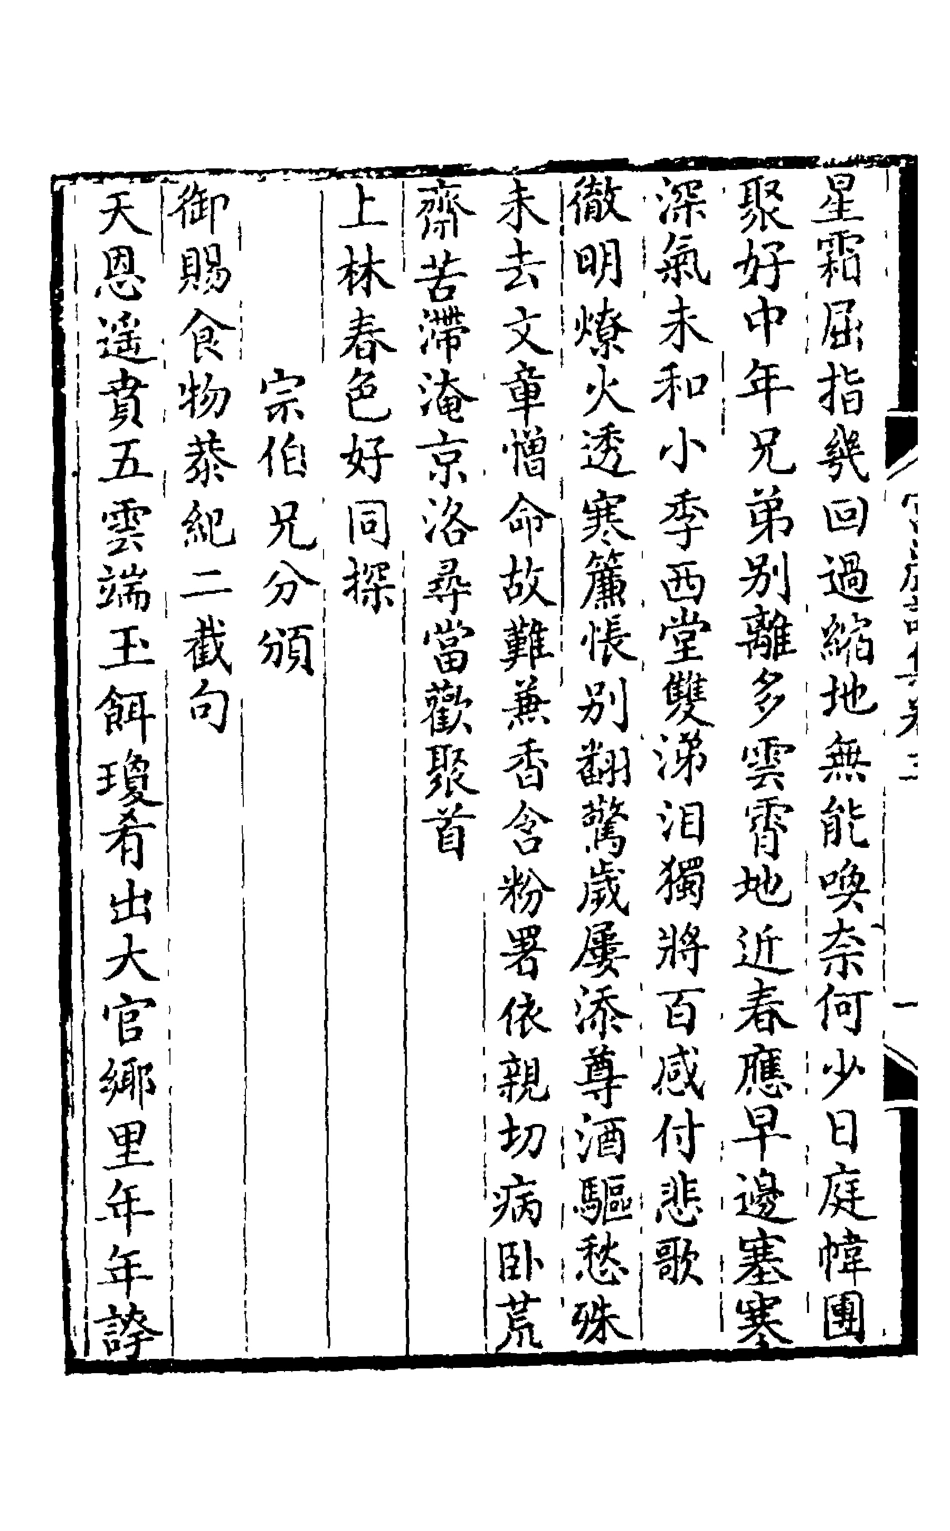 星霜屈指幾回過縮地無能喚奈何少日庭幃團
聚好中年兄弟别離多雲霄地近春應早邊塞寒
深氣未和小季西堂雙涕泪獨將百感付悲歌
徹明燎火透寒簾悵别翻驚歲屢添尊酒驅愁殊
未去文章憎命故難兼香含粉署依親切病卧荒
齋苦滯淹京洛尋當歡聚首
上林春色好同探
宗伯兄分頒
御賜食物恭紀二截句
天恩遥賁五雲端玉餌瓊肴出大官鄉里年年誇
卷三
一